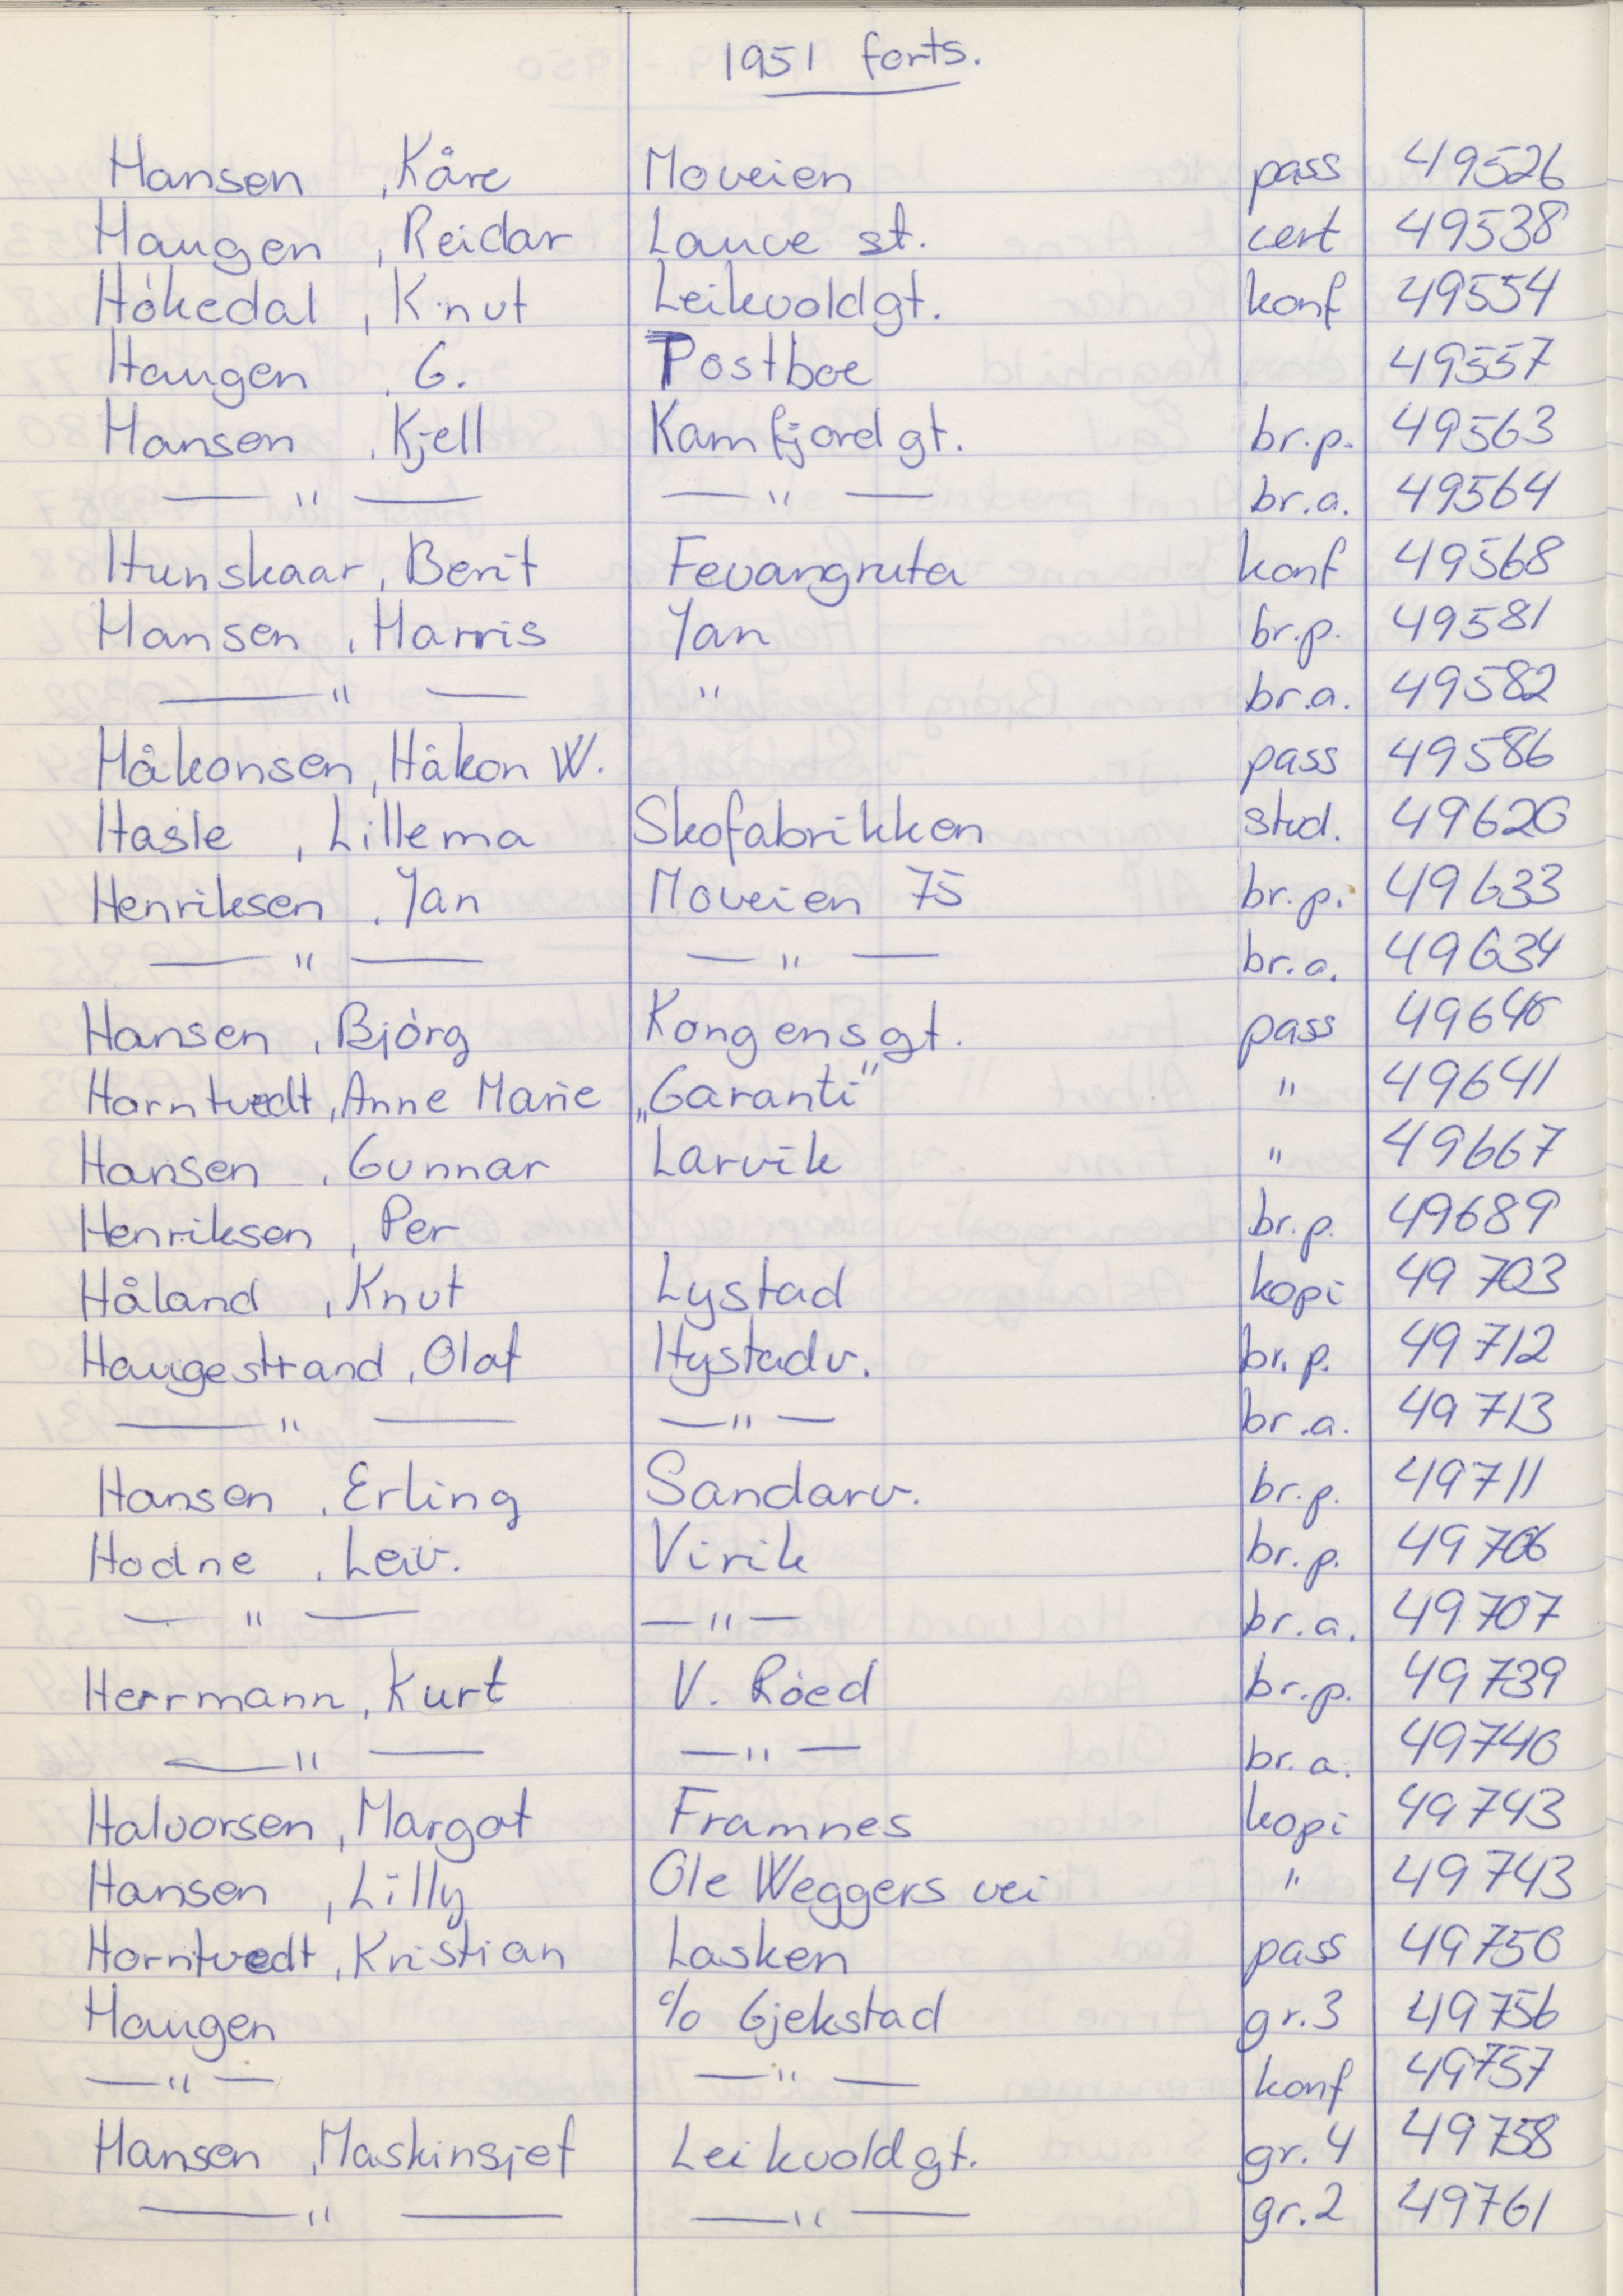 1951 forts.
Hansen , Kåre Moveien pass 49526
Haugen , Reidar Lauve st. cert 49538
Hökedal , Knut Leikvoldgt. konf 49554
Haugen , G. Postboe 49557
Hansen , Kjell Kamfjordgt. br.p. 49563
— " — — " — br.a. 49564
Hunskaar, Berit Fevangruta konf 49568
Hansen , Harris Jan br.p. 49581
— " — " br.a. 49582
Håkonsen, Håkon W. pass 49586
Hasle , Lillema Skofabrikken stud. 49620
Henriksen , Jan Moveien 75 br.p. 49633
— " — — " — br.a. 49634
Hansen , Björg Kongensgt. pass 49640
Horntvedt, Anne Marie „Garanti" " 49641
Hansen , Gunnar Larvik " 49667
Henriksen , Per br.p. 49689
Håland , Knut Lystad kopi 49703
Haugestrand, Olaf Hystadv. br.p. 49712
— " — — " — br.a. 49713
Hansen , Erling Sandarv. br.p. 49711
Hodne , Leiv. Virik br.p. 49706
— " — — " — br.a. 49707
Herrmann, Kurt V. Röed br.p. 49739
— " — — " — br.a. 49740
Halvorsen, Margot Framnes kopi 49743
Hansen , Lilly Ole Weggers vei " 49743
Horntvedt, Kristian Lasken pass 49750
Haugen c/o Gjekstad gr.3 49756
— " — — " — konf 49757
Hansen , Maskinsjef Leikvoldgt. gr.4 49758
— " — — " — gr.2 49761